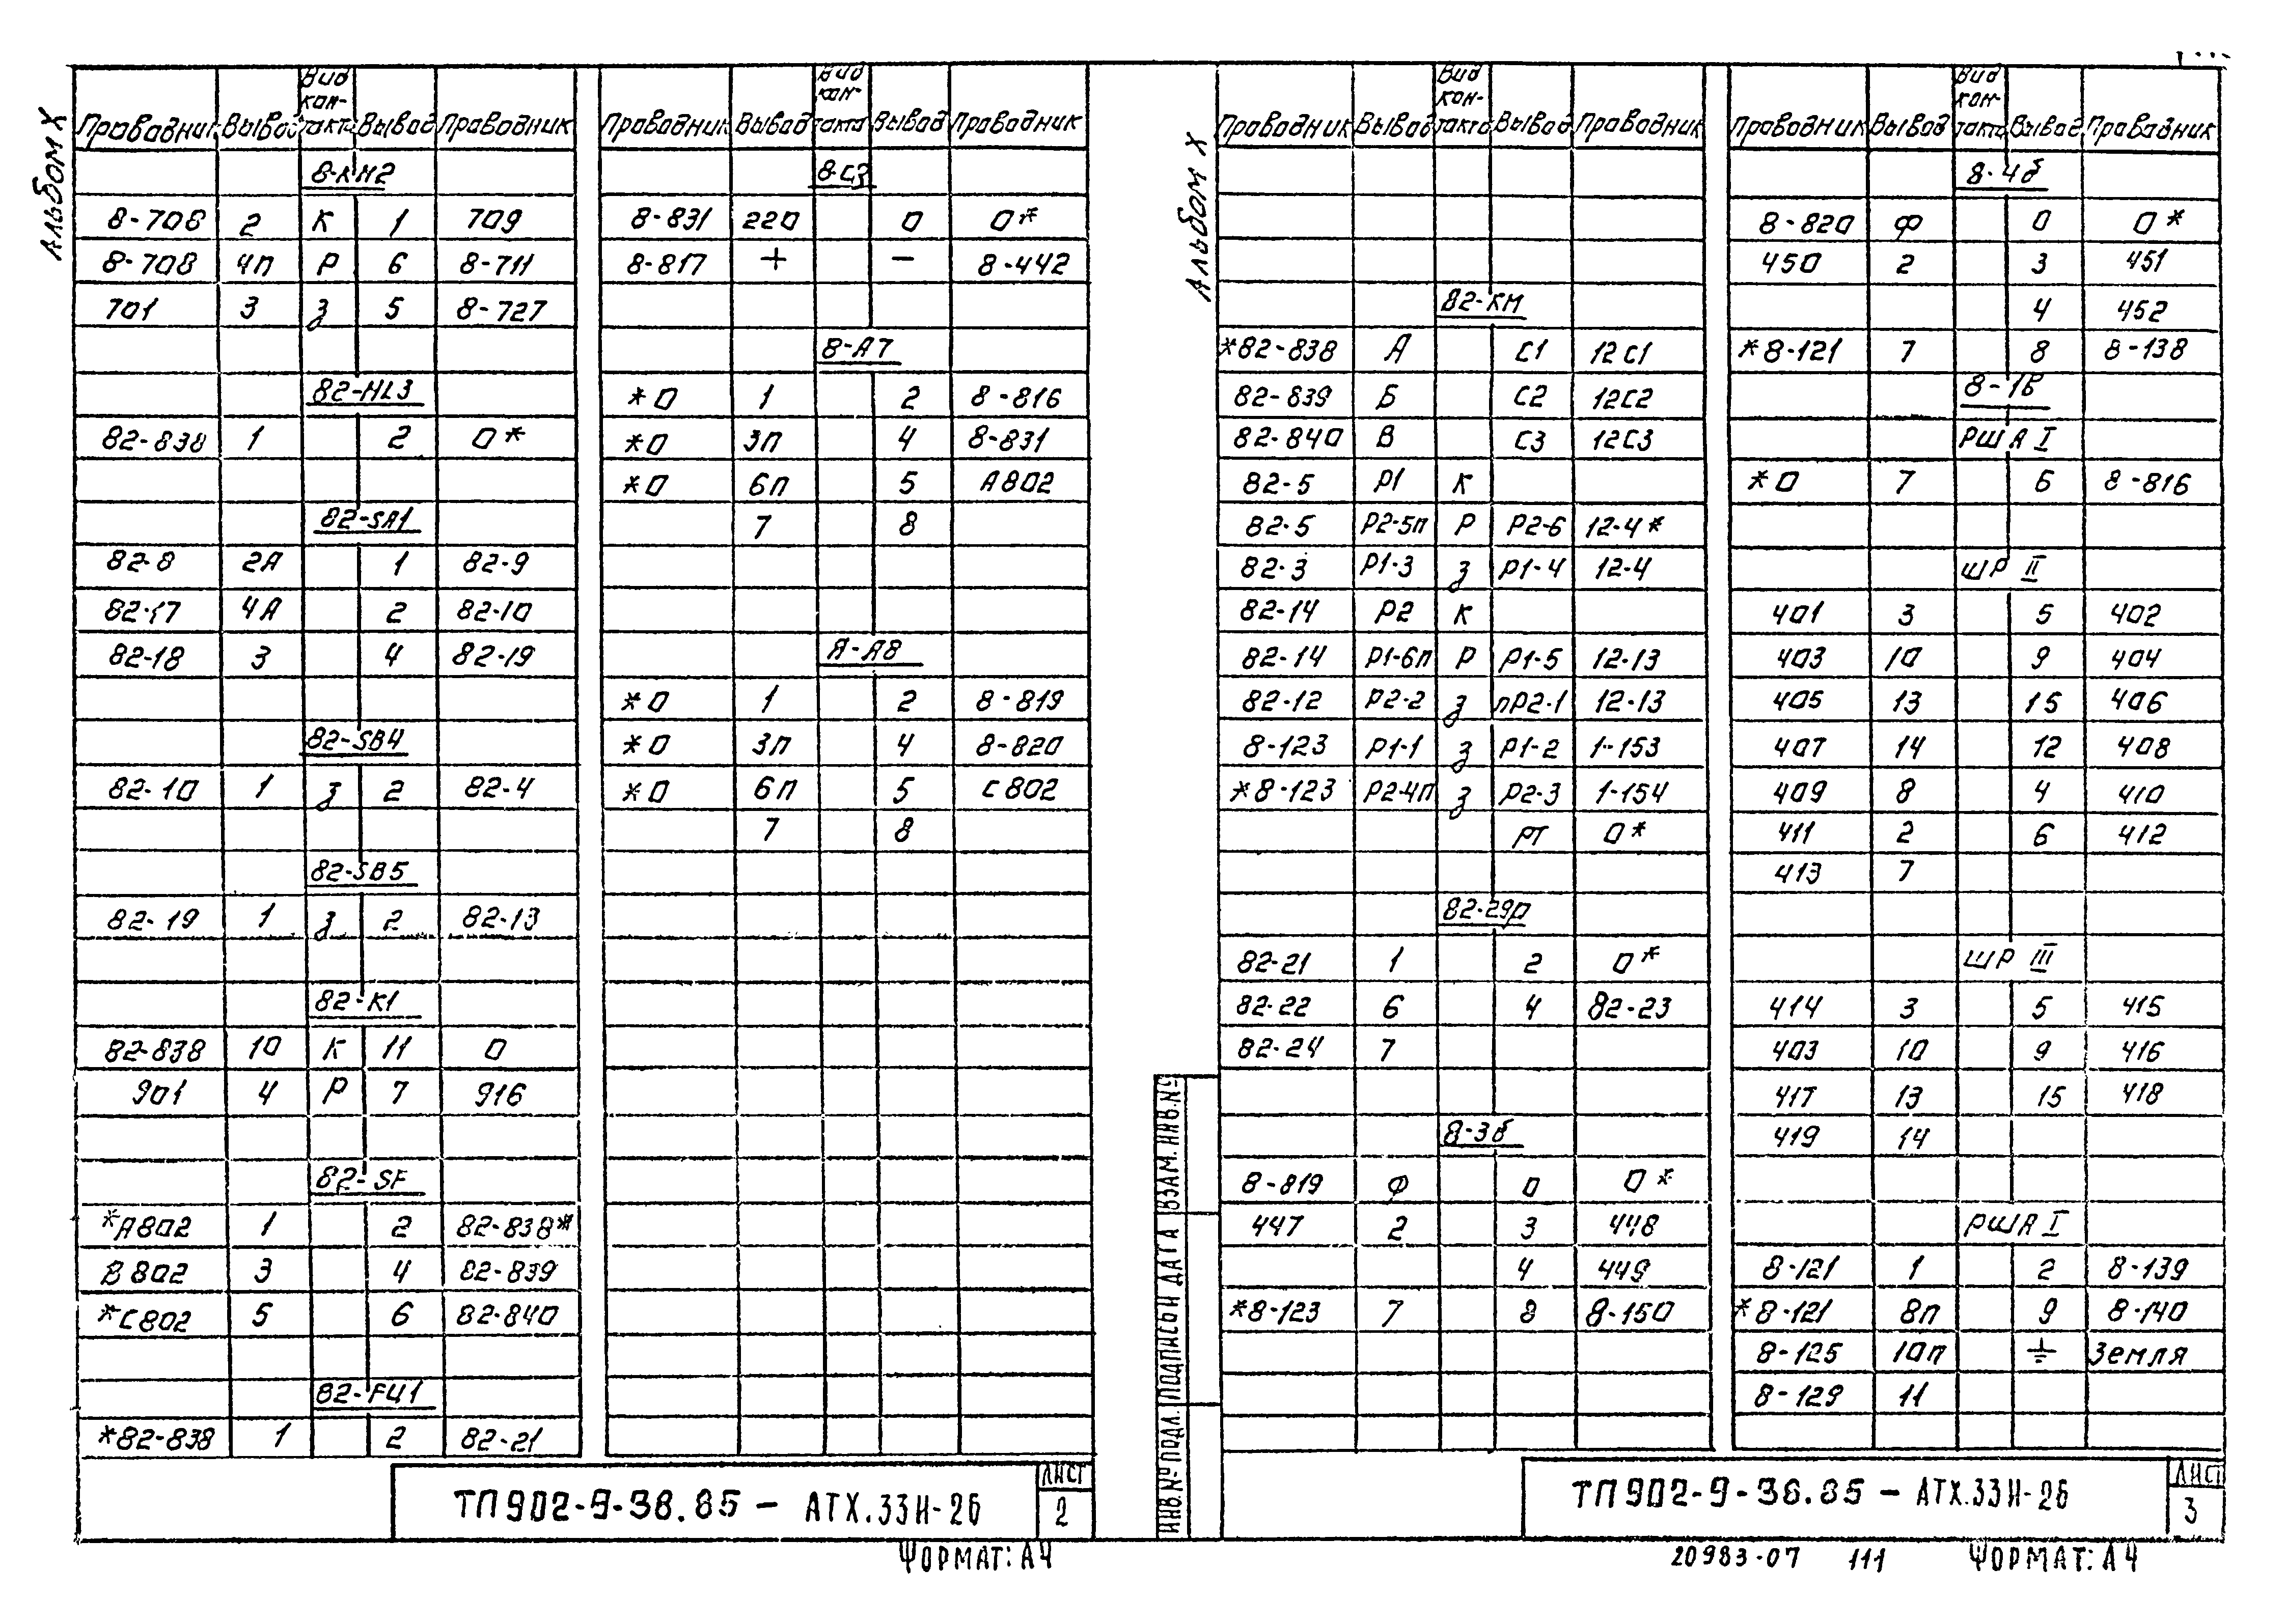 Альбом X
Проводник Вывод Вид кон-такта Вывод Проводник
8-КМ2
8-708 2 К 1 709
8-708 4п Р 6 8-711
701 3 З 5 8-727
82-HL3
82-838 1 2 0*
82-SA1
82-8 2А 1 82-9
82-17 4А 2 82-10
82-18 3 4 82-19
82-SB4
82-10 1 З 2 82-4
82-SB5
82-19 1 З 2 82-13
82-К1
82-838 10 К 11 0
901 4 Р 7 916
82-SF
*А802 1 2 82-838*
В802 3 4 82-839
*С802 5 6 82-840
82-FU1
*82-838 1 2 82-21
Проводник Вывод Вид кон-такта Вывод Проводник
8-G3
8-831 220 0 0*
8-817 + − 8-442
8-А7
*0 1 2 8-816
*0 3п 4 8-831
*0 6п 5 А802
7 8
Я-А8
*0 1 2 8-819
*0 3п 4 8-820
*0 6п 5 С802
7 8
ТП902-9-38.85 – АТХ.33И-2б
Лист
2
Формат: А4
Альбом X
Проводник Вывод Вид кон-такта Вывод Проводник
82-КМ
*82-838 А С1 12С1
82-839 Б С2 12С2
82-840 В С3 12С3
82-5 Р1 К
82-5 Р2-5п Р Р2-6 12-4*
82-3 Р1-3 З Р1-4 12-4
82-14 Р2 К
82-14 Р1-6п Р Р1-5 12-13
82-12 Р2-2 З пР2-1 12-13
8-123 Р1-1 З Р1-2 1-153
*8-123 Р2-4п З Р2-3 1-154
РТ 0*
82-29р
82-21 1 2 0*
82-22 6 4 82-23
82-24 7
8-3б
8-819 Ф 0 0*
447 2 3 448
4 449
*8-123 7 8 8-150
Проводник Вывод Вид кон-такта Вывод Проводник
8-4б
8-820 Ф 0 0*
450 2 3 451
4 452
*8-121 7 8 8-138
8-1В
РША I
*0 7 6 8-816
ШР II
401 3 5 402
403 10 9 404
405 13 15 406
407 14 12 408
409 8 4 410
411 2 6 412
413 7
ШР III
414 3 5 415
403 10 9 416
417 13 15 418
419 14
РША I
8-121 1 2 8-139
*8-121 8п 9 8-140
8-125 10п ⏚ Земля
8-129 11
ИНВ.№ ПОДЛ. ПОДПИСЬ И ДАТА ВЗАМ. ИНВ.№
ТП902-9-38.85 – АТХ.33И-2б
Лист
3
20983-07 111 Формат: А4